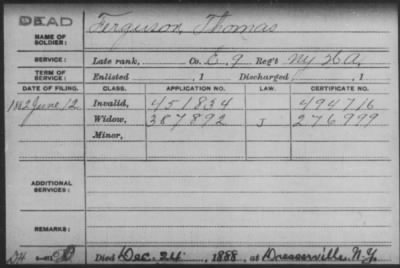 DEAD
NAME OF SOLDIER:
Ferguson, Thomas
SERVICE:
Late rank, Co. E. 9 Reg't NY H A,
TERM OF SERVICE:
Enlisted , 1 Discharged , 1
DATE OF FILING. CLASS. APPLICATION NO. LAW. CERTIFICATE NO.
Invalid, 451834 494716
June 12 Widow, 387892 J 276999
Minor,
ADDITIONAL SERVICES:
REMARKS:
Died Dec. 24 , 1888, at Dresserville, N.Y.